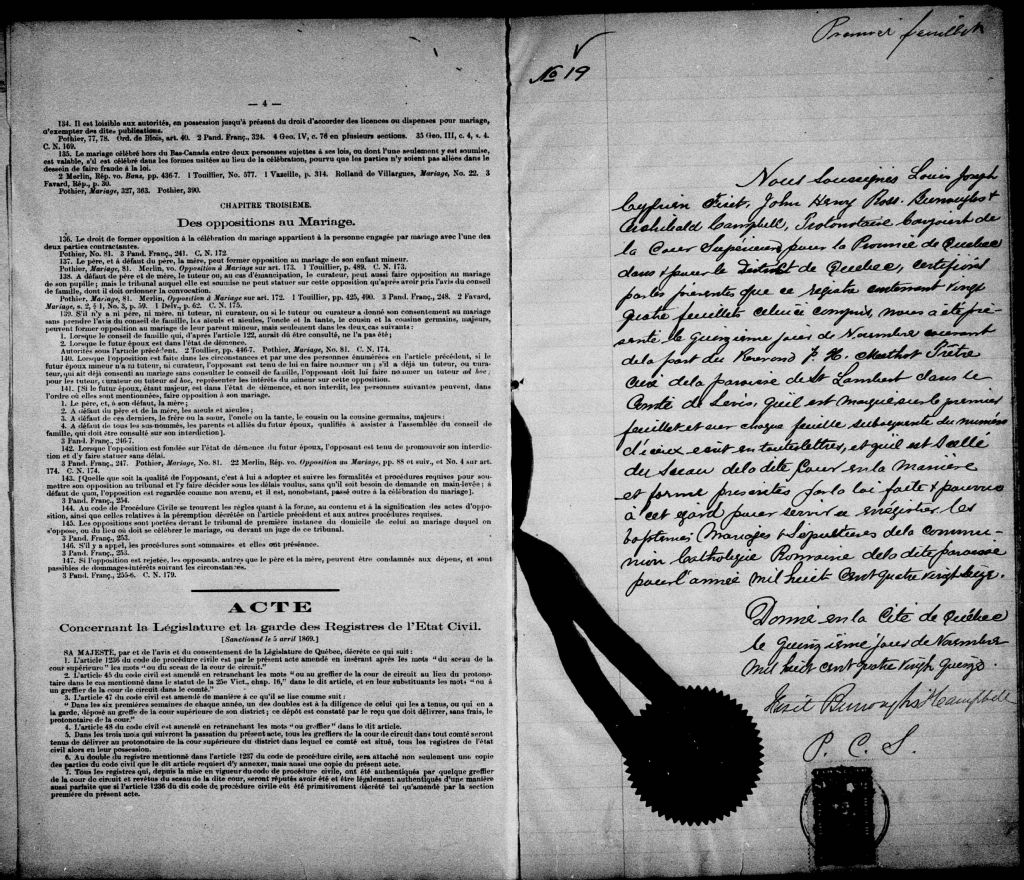 — 4 —
134. Il est loisible aux autorités, en possession jusqu'à présent du droit d'accorder des licences ou dispenses pour mariage,
d'exempter des dites publications.
Pothier, 77, 78. Ord. de Blois, art. 40. 2 Pand. Franç., 324. 4 Geo. IV, c. 76 en plusieurs sections. 35 Geo. III, c. 4, s. 4.
C. N. 169.
135. Le mariage célébré hors du Bas-Canada entre deux personnes sujettes à ses lois, ou dont l'une seulement y est soumise,
est valable, s'il est célébré dans les formes usitées au lieu de la célébration, pourvu que les parties n'y soient pas allées dans le
dessein de faire fraude à la loi.
2 Merlin, Rép. vo. Bans, pp. 436-7. 1 Touillier, No. 577. 1 Vazeille, p. 314. Rolland de Villargues, Mariage, No. 22. 3
Favard, Rép., p. 30.
Pothier, Mariage, 327, 363. Pothier, 390.
CHAPITRE TROISIÈME.
Des oppositions au Mariage.
136. Le droit de former opposition à la célébration du mariage appartient à la personne engagée par mariage avec l'une des
deux parties contractantes.
Pothier, No. 81. 3 Pand. Franç., 241. C. N. 172.
137. Le père, et à défaut du père, la mère, peut former opposition au mariage de son enfant mineur.
Pothier, Mariage, 81. Merlin, vo. Opposition à Mariage sur art. 173. 1 Touillier, p. 489. C. N. 173.
138. A défaut de père et de mère, le tuteur ou, au cas d'émancipation, le curateur, peut aussi faire opposition au mariage
de son pupille; mais le tribunal auquel elle est soumise ne peut statuer sur cette opposition qu'après avoir pris l'avis du conseil
de famille, dont il doit ordonner la convocation.
Pothier, Mariage, 81. Merlin, Opposition à Mariage sur art. 172. 1 Touillier, pp. 425, 490. 3 Pand. Franç., 248. 2 Favard,
Mariage, s. 2, § 1, No. 3, p. 59. 1 Delv., p. 62. C. N. 175.
139. S'il n'y a ni père, ni mère, ni tuteur, ni curateur, ou si le tuteur ou curateur a donné son consentement au mariage
sans prendre l'avis du conseil de famille, les aïeuls et aïeules, l'oncle et la tante, le cousin et la cousine germains, majeurs,
peuvent former opposition au mariage de leur parent mineur, mais seulement dans les deux cas suivants:
1. Lorsque le conseil de famille qui, d'après l'article 122, aurait dû être consulté, ne l'a pas été;
2. Lorsque le futur époux est dans l'état de démence.
Autorités sous l'article précédent. 2 Touillier, pp. 446-7. Pothier, Mariage, No. 81. C. N. 174.
140. Lorsque l'opposition est faite dans les circonstances et par une des personnes énumérées en l'article précédent, si le
futur époux mineur n'a ni tuteur, ni curateur, l'opposant est tenu de lui en faire nommer un; s'il a déjà un tuteur, ou cura-
teur, qui ait déjà consenti au mariage sans consulter le conseil de famille, l'opposant doit lui faire nommer un tuteur ad hoc;
pour les tuteur, curateur ou tuteur ad hoc, représenter les intérêts du mineur sur cette opposition.
141. [Si le futur époux, étant majeur, est dans l'état de démence, et non interdit, les personnes suivantes peuvent, dans
l'ordre où elles sont mentionnées, faire opposition à son mariage.
1. Le père, et, à son défaut, la mère;
2. A défaut du père et de la mère, les aïeuls et aïeules;
3. A défaut de ces derniers, le frère ou la sœur, l'oncle ou la tante, le cousin ou la cousine germains, majeurs;
4. A défaut de tous les sus-nommés, les parents et alliés du futur époux, qualifiés à assister à l'assemblée du conseil de
famille, qui doit être consulté sur son interdiction].
3 Pand. Franç., 246-7.
142. Lorsque l'opposition est fondée sur l'état de démence du futur époux, l'opposant est tenu de promouvoir son interdic-
tion et d'y faire statuer sans délai.
3 Pand. Franç., 247. Pothier, Mariage, No. 81. 22 Merlin, Rép. vo. Opposition au Mariage, pp. 88 et suiv., et No. 4 sur art.
174. C. N. 174.
143. [Quelque que soit la qualité de l'opposant, c'est à lui à adopter et suivre les formalités et procédures requises pour sou-
mettre son opposition au tribunal et l'y faire décider sous les délais voulus, sans qu'il soit besoin de demande en main-levée; à
défaut de quoi, l'opposition est regardée comme non avenu, et il est, nonobstant, passé outre à la célébration du mariage].
3 Pand. Franç., 254.
144. Au code de Procédure Civile se trouvent les règles quant à la forme, au contenu et à la signification des actes d'oppo-
sition, ainsi que celles relatives à la péremption décrétée en l'article précédent et aux autres procédures requises.
145. Les oppositions sont portées devant le tribunal de première instance du domicile de celui au mariage duquel on
s'oppose, ou du lieu où doit se célébrer le mariage, ou devant un juge de ce tribunal.
3 Pand. Franç., 253.
146. S'il y a appel, les procédures sont sommaires et elles ont préséance.
3 Pand. Franç., 255.
147. Si l'opposition est rejetée, les opposants, autres que le père et la mère, peuvent être condamnés aux dépens, et sont
passibles de dommages-intérêts suivant les circonstances.
3 Pand. Franç., 255-6. C. N. 179.
ACTE
Concernant la Législature et la garde des Registres de l'Etat Civil.
[Sanctionné le 5 avril 1869.]
SA MAJESTE, par et de l'avis et du consentement de la Législature de Québec, décrète ce qui suit:
1. L'article 1236 du code de procédure civile est par le présent acte amendé en insérant après les mots "du sceau de la
cour supérieure" les mots "ou du sceau de la cour de circuit."
2. L'article 45 du code civil est amendé en retranchant les mots "ou au greffier de la cour de circuit au lieu du protono-
taire dans le cas mentionné dans le statut de la 25e Vict., chap. 16," dans le dit article, et en leur substituant les mots "ou à
un greffier de la cour de circuit dans le comté."
3. L'article 47 du code civil est amendé de manière à ce qu'il se lise comme suit:
"Dans les six premières semaines de chaque année, un des doubles est à la diligence de celui qui les a tenus, ou qui en a
la garde, déposé au greffe de la cour supérieure de son district; ce dépôt est constaté par le reçu que doit délivrer, sans frais, le
protonotaire de la cour."
4. L'article 48 du code civil est amendé en retranchant les mots "ou greffier" dans le dit article.
5. Dans les trois mois qui suivront la passation du présent acte, tous les greffiers de la cour de circuit dans tout comté seront
tenus de délivrer au protonotaire de la cour supérieure du district dans lequel ce comté est situé, tous les registres de l'état
civil alors en leur possession.
6. Au double du registre mentionné dans l'article 1237 du code de procédure civile, sera attaché non seulement une copie
des parties du code civil que le dit article requiert d'y annexer, mais aussi une copie du présent acte.
7. Tous les registres qui, depuis la mise en vigueur du code de procédure civile, ont été authentiqués par quelque greffier
de la cour de circuit et revêtus du sceau de la dite cour, seront réputés avoir été et être légalement authentiqués d'une manière
aussi parfaite que si l'article 1236 du dit code de procédure civile eût été primitivement décrété tel qu'amendé par la section
première du présent acte.
Premier feuillet
No 19
Nous soussignés Louis Joseph
Cyprien Fiset, John Henry Ross Burroughs &
Archibald Campbell, Protonotaire Conjoint de
la Cour Supérieure pour la Province de Quebec
dans & pour le District de Quebec, certifions
par les présentes que ce registre contenant vingt
quatre feuillets celui-ci compris, nous a été pré-
senté le quinzième jour de Novembre courant
de la part du Révérend P. H. Methot Prêtre
Curé de la paroisse de St Lambert dans le
Comté de Levis, qu'il est marqué sur le premier
feuillet et sur chaque feuille subsequente du numéro
d'iceux écrit en toutes lettres, et qu'il est scellé
du Sceau de la dite Cour en la manière
et forme prescrites par la loi faite & pourvue
à cet égard pour servir à enregistrer les
baptêmes, Mariages & Sépultures de la commu-
nion Catholique Romaine de la dite paroisse
pour l'année mil huit cent quatre vingt seize.
Donné en la Cité de Québec
le quinzième jour de Novembre
mil huit cent quatre vingt quinze.
Fiset Burroughs & Campbell
P. C. S.